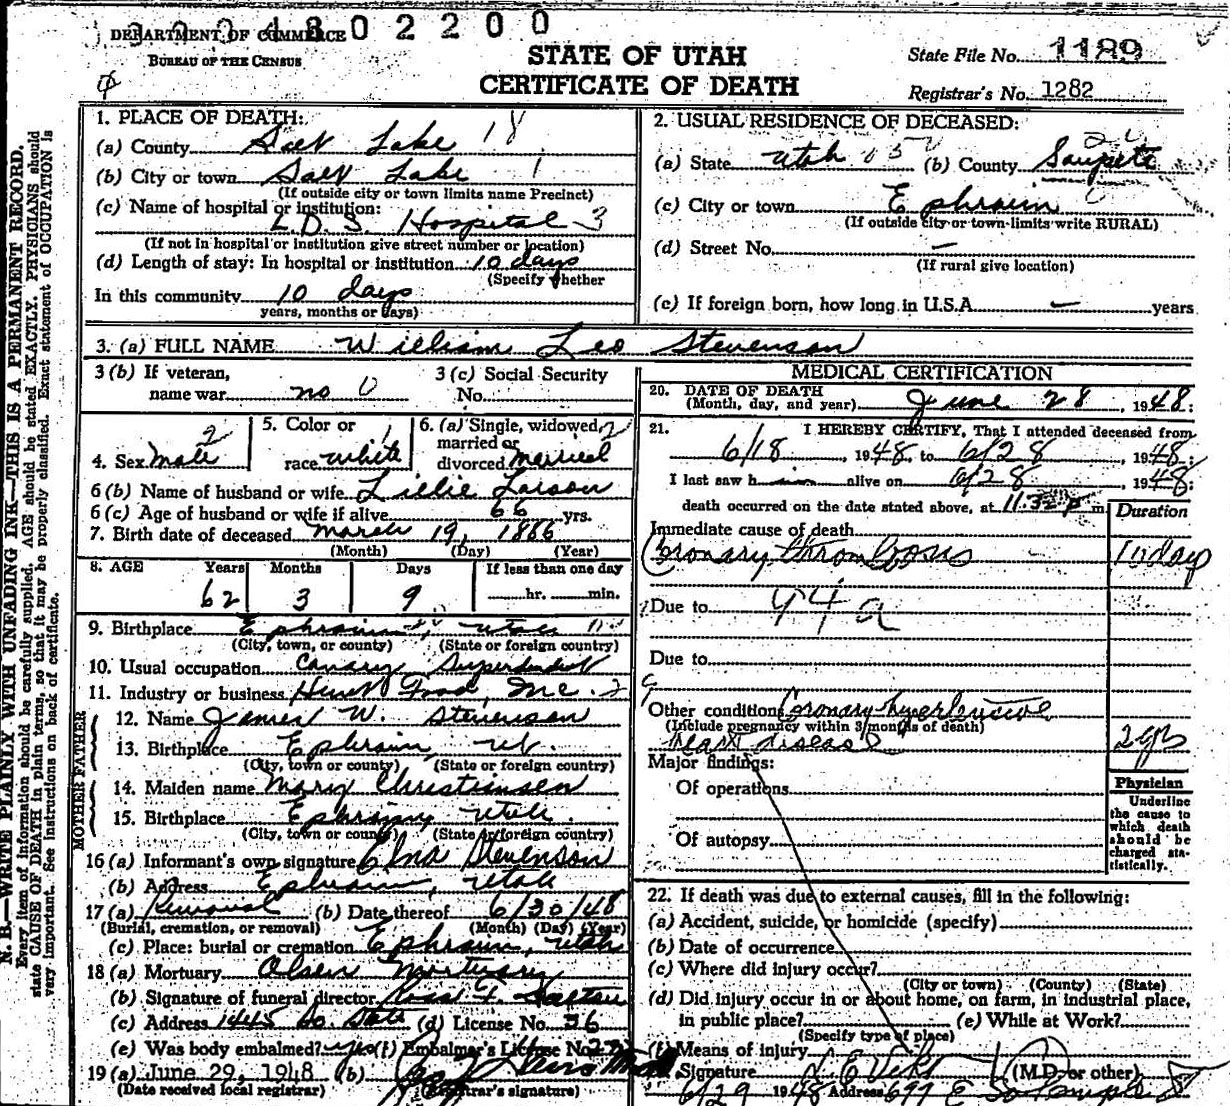 DEPARTMENT OF COMMERCE
BUREAU OF THE CENSUS
0 2 2 0 0
STATE OF UTAH
CERTIFICATE OF DEATH
State File No. 1189
Registrar's No. 1282
N. B.—WRITE PLAINLY WITH UNFADING INK—THIS IS A PERMANENT RECORD.
Every item of information should be carefully supplied. AGE should be stated EXACTLY. PHYSICIANS should
state CAUSE OF DEATH in plain terms, so that it may be properly classified. Exact statement of OCCUPATION is
very important. See instructions on back of certificate.
1. PLACE OF DEATH:
(a) County Salt Lake 18
(b) City or town Salt Lake 1
(If outside city or town limits name Precinct)
(c) Name of hospital or institution:
L.D.S. Hospital -3
(If not in hospital or institution give street number or location)
(d) Length of stay: In hospital or institution 10 days
(Specify whether
In this community 10 days
years, months or days)
2. USUAL RESIDENCE OF DECEASED:
(a) State Utah (b) County Sanpete
(c) City or town Ephraim
(If outside city or town limits write RURAL)
(d) Street No. —
(If rural give location)
(e) If foreign born, how long in U.S.A. — years
3. (a) FULL NAME William Leo Stevenson
3 (b) If veteran, name war no 0
3 (c) Social Security No.
4. Sex Male 2
5. Color or race white 1
6. (a) Single, widowed, married or divorced married 2
6 (b) Name of husband or wife Lillie Larson
6 (c) Age of husband or wife if alive 66 yrs.
7. Birth date of deceased March 19, 1886
(Month) (Day) (Year)
8. AGE Years Months Days If less than one day
62 3 9 hr. min.
9. Birthplace Ephraim, Utah
(City, town, or county) (State or foreign country)
10. Usual occupation
11. Industry or business Inc. 2
MOTHER FATHER
12. Name James W. Stevenson
13. Birthplace Ephraim, Ut.
(City, town or county) (State or foreign country)
14. Maiden name Mary Christiansen
15. Birthplace Ephraim, Utah
(City, town or county) (State or foreign country)
16 (a) Informant's own signature Elna Stevenson
(b) Address Ephraim, Utah
17 (a) Removal (b) Date thereof 6/30/48
(Burial, cremation, or removal) (Month) (Day) (Year)
(c) Place: burial or cremation Ephraim, Utah
18 (a) Mortuary Olsen Mortuary
(b) Signature of funeral director
(c) Address 1445 So. State (d) License No. 56
(e) Was body embalmed? yes (f) Embalmer's License No.
19 (a) June 29, 1948 (b)
(Date received local registrar) (Registrar's signature)
MEDICAL CERTIFICATION
20. DATE OF DEATH
(Month, day, and year) June 28, 1948.
21. I HEREBY CERTIFY, That I attended deceased from
6/18, 1948, to 6/28, 1948;
I last saw him alive on 6/28, 1948;
death occurred on the date stated above, at 11:32 p m.
Duration
Immediate cause of death
Coronary thrombosis 10 days
Due to 94a
Due to
Other conditions Coronary hypertensive
(Include pregnancy within 3 months of death)
heart disease 2 yrs
Major findings:
Of operations
Of autopsy
Physician
Underline
the cause to
which death
should be
charged sta-
tistically.
22. If death was due to external causes, fill in the following:
(a) Accident, suicide, or homicide (specify)
(b) Date of occurrence
(c) Where did injury occur?
(City or town) (County) (State)
(d) Did injury occur in or about home, on farm, in industrial place,
in public place? (e) While at Work?
(Specify type of place)
(f) Means of injury
Signature (M.D. or other)
6/29 1948 Address 699 E So Temple